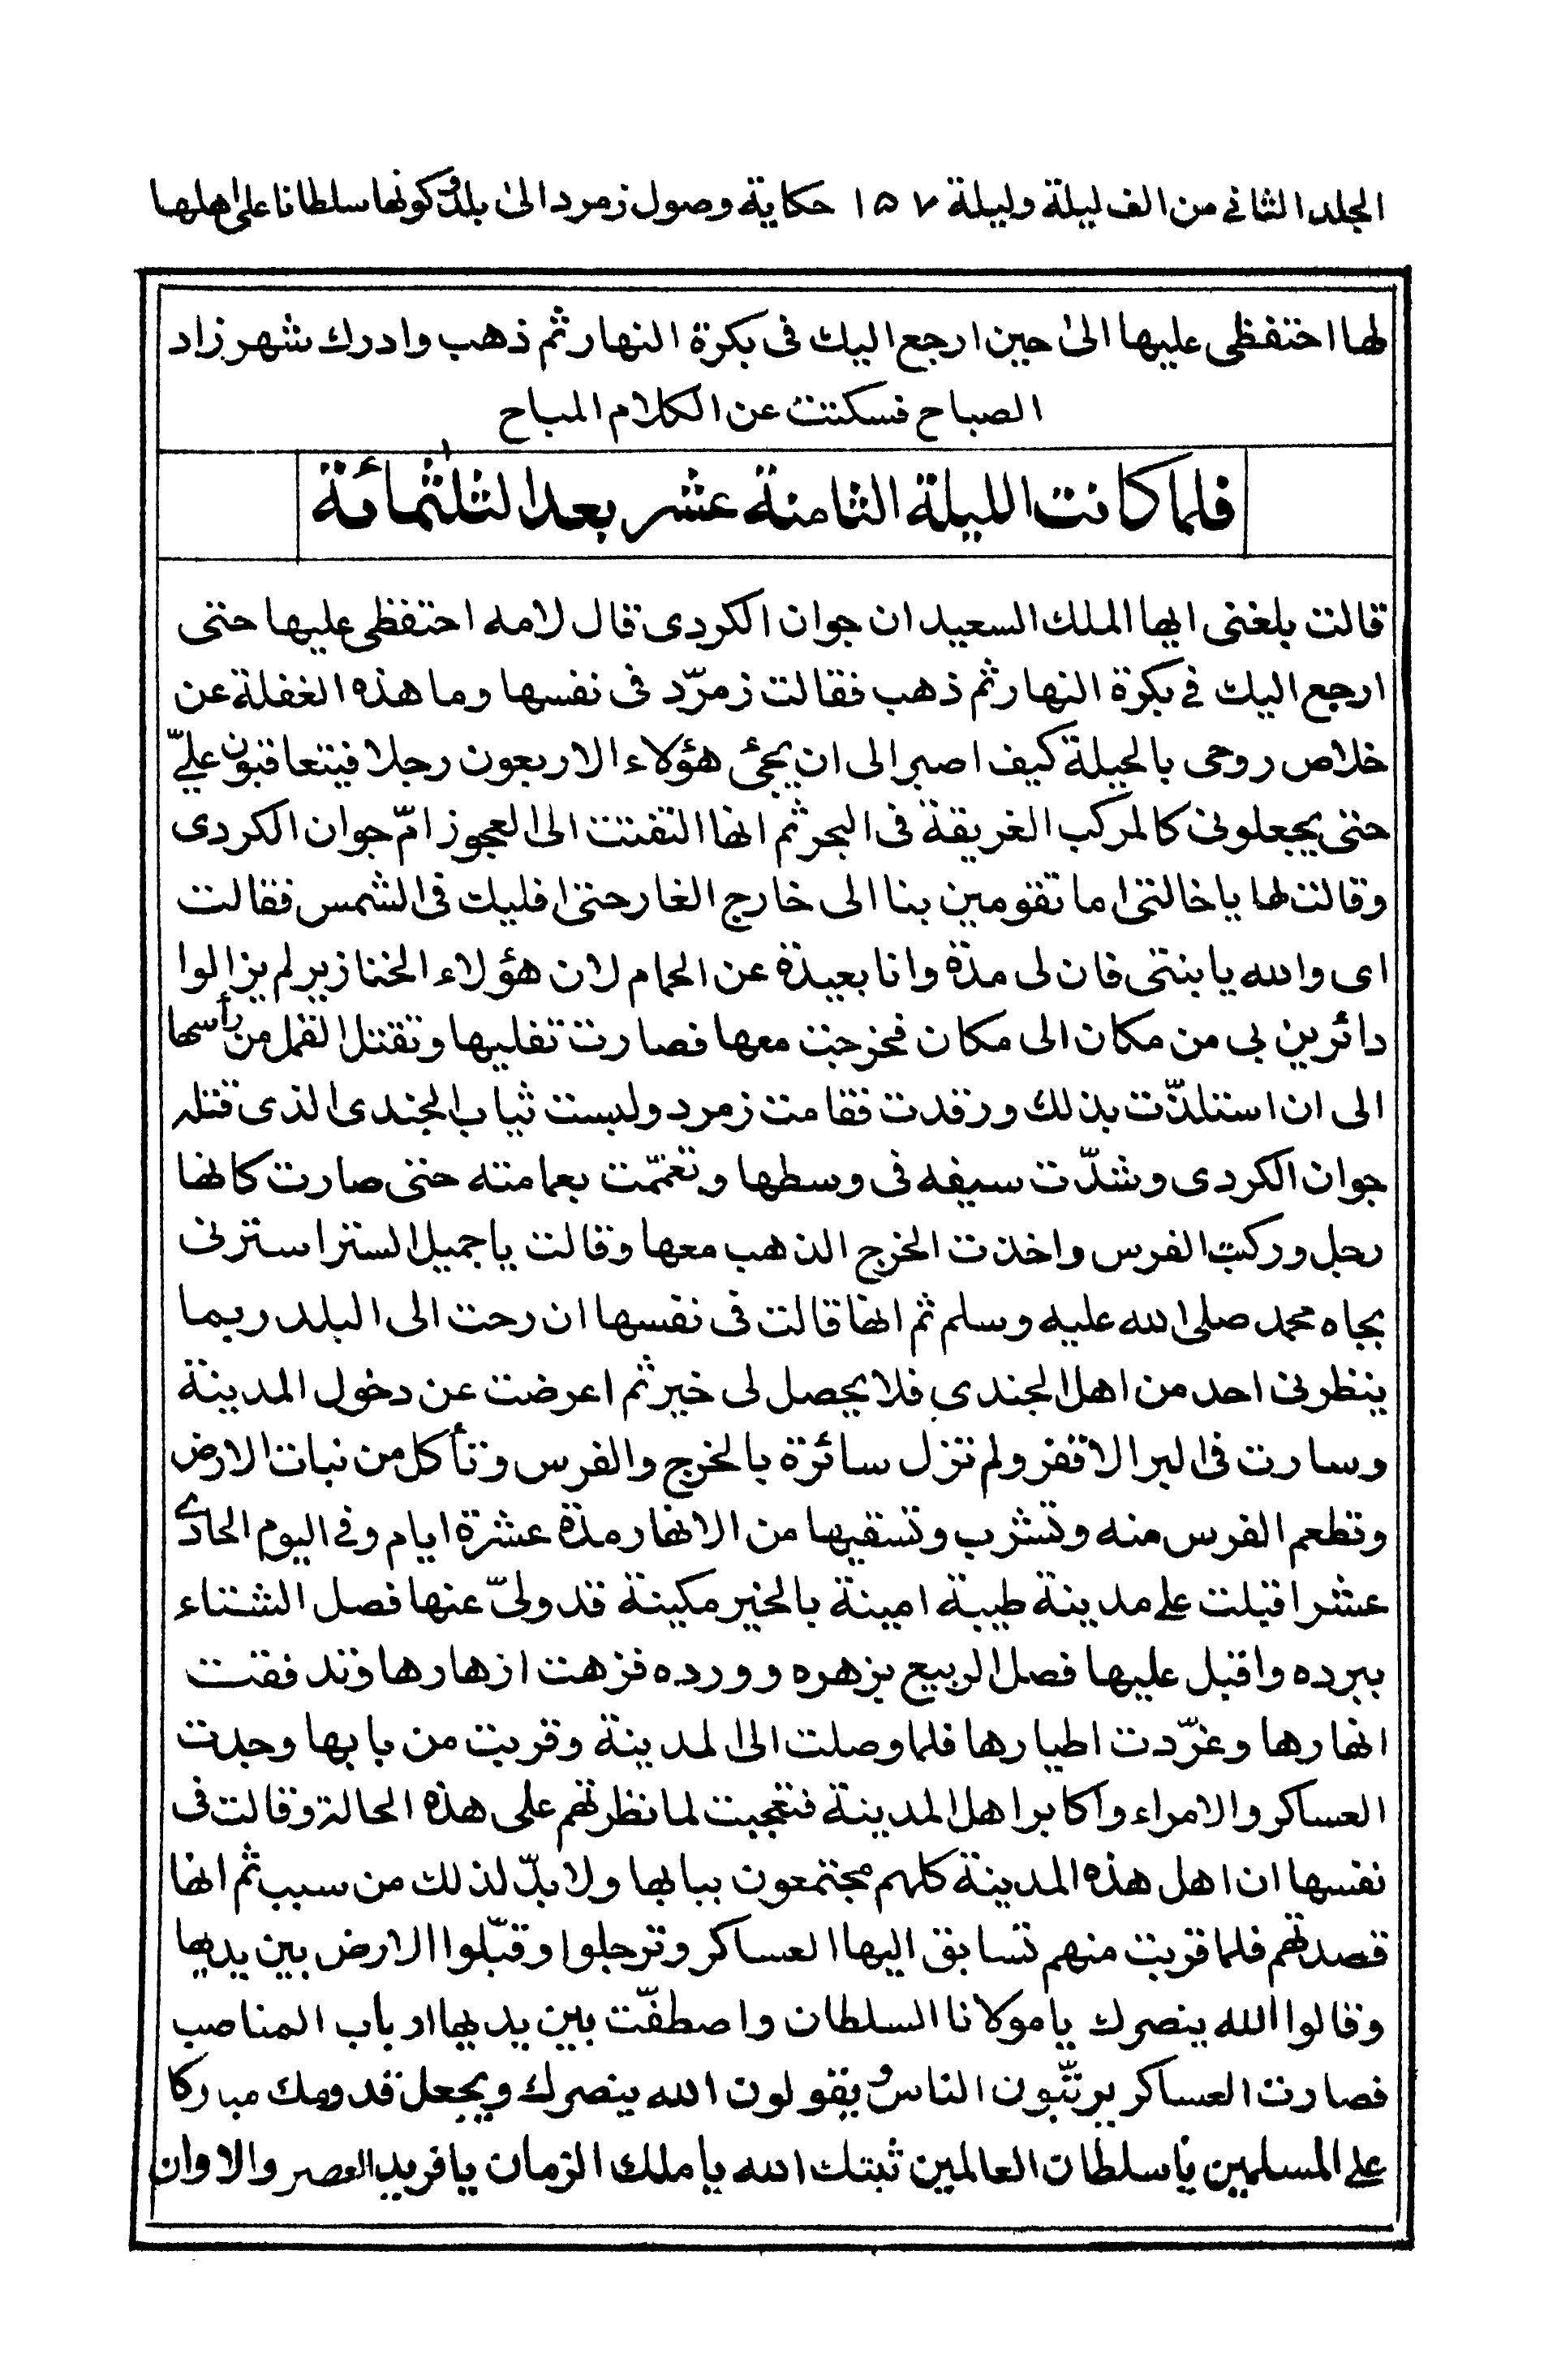 المجلد الثاني من الف ليلة وليلة ١٥٧ حكاية وصول زمرد الى بلد وكونها سلطانا على اهلها
لها احتفظى عليها الى حين ارجع اليك فى بكرة النهار ثم ذهب وادرك شهرزاد
الصباح فسكتت عن الكلام المباح
فلما كانت الليلة الثامنة عشر بعد الثلثمائة
قالت بلغنى ايها الملك السعيد ان جوان الكردى قال لامه احتفظى عليها حتى
ارجع اليك في بكرة النهار ثم ذهب فقالت زمرّد فى نفسها وما هذه الغفلة عن
خلاص روحى بالحيلة كيف اصبر الى ان يجئ هؤلاء الاربعون رجلا فيتعاقبون علىّ
حتى يجعلونى كالمركب الغريقة فى البحر ثم انها التفتت الى العجوز امّ جوان الكردى
وقالت لها يا خالتى اما تقومين بنا الى خارج الغار حتى افليك فى الشمس فقالت
اى والله يا بنتى فان لى مدة وانا بعيدة عن الحمام لان هؤلاء الخنازير لم يزالوا
دائرين بى من مكان الى مكان فخرجت معها فصارت تفليها وتقتل القمل من رأسها
الى ان استلذّت بذلك ورقدت فقامت زمرد ولبست ثياب الجندى الذى قتله
جوان الكردى وشدّت سيفه فى وسطها وتعمّمت بعمامته حتى صارت كانها
رجل وركبت الفرس واخذت الخرج الذهب معها وقالت يا جميل الستر استرنى
بجاه محمد صلى الله عليه وسلم ثم انها قالت فى نفسها ان رحت الى البلد ربما
ينظرنى احد من اهل الجندى فلا يحصل لى خير ثم اعرضت عن دخول المدينة
وسارت فى البر الاقفر ولم تزل سائرة بالخرج والفرس وتأكل من نبات الارض
وتطعم الفرس منه وتشرب وتسقيها من الانهار مدة عشرة ايام وفي اليوم الحادى
عشر اقبلت على مدينة طيبة امينة بالخير مكينة قد ولّى عنها فصل الشتاء
ببرده واقبل عليها فصل الربيع بزهره وورده فزهت ازهارها وتدفقت
انهارها وغرّدت اطيارها فلما وصلت الى المدينة وقربت من بابها وجدت
العساكر والامراء واكابر اهل المدينة فتعجبت لما نظرتهم على هذه الحالة وقالت فى
نفسها ان اهل هذه المدينة كلهم مجتمعون ببابها ولا بدّ لذلك من سبب ثم انها
قصدتهم فلما قربت منهم تسابق اليها العساكر وترجلوا وقبّلوا الارض بين يديها
وقالوا الله ينصرك يا مولانا السلطان واصطفّت بين يديها ارباب المناصب
فصارت العساكر يرتّبون الناس ويقولون الله ينصرك ويجعل قدومك مباركا
على المسلمين يا سلطان العالمين ثبتك الله يا ملك الزمان يا فريد العصر والاوان